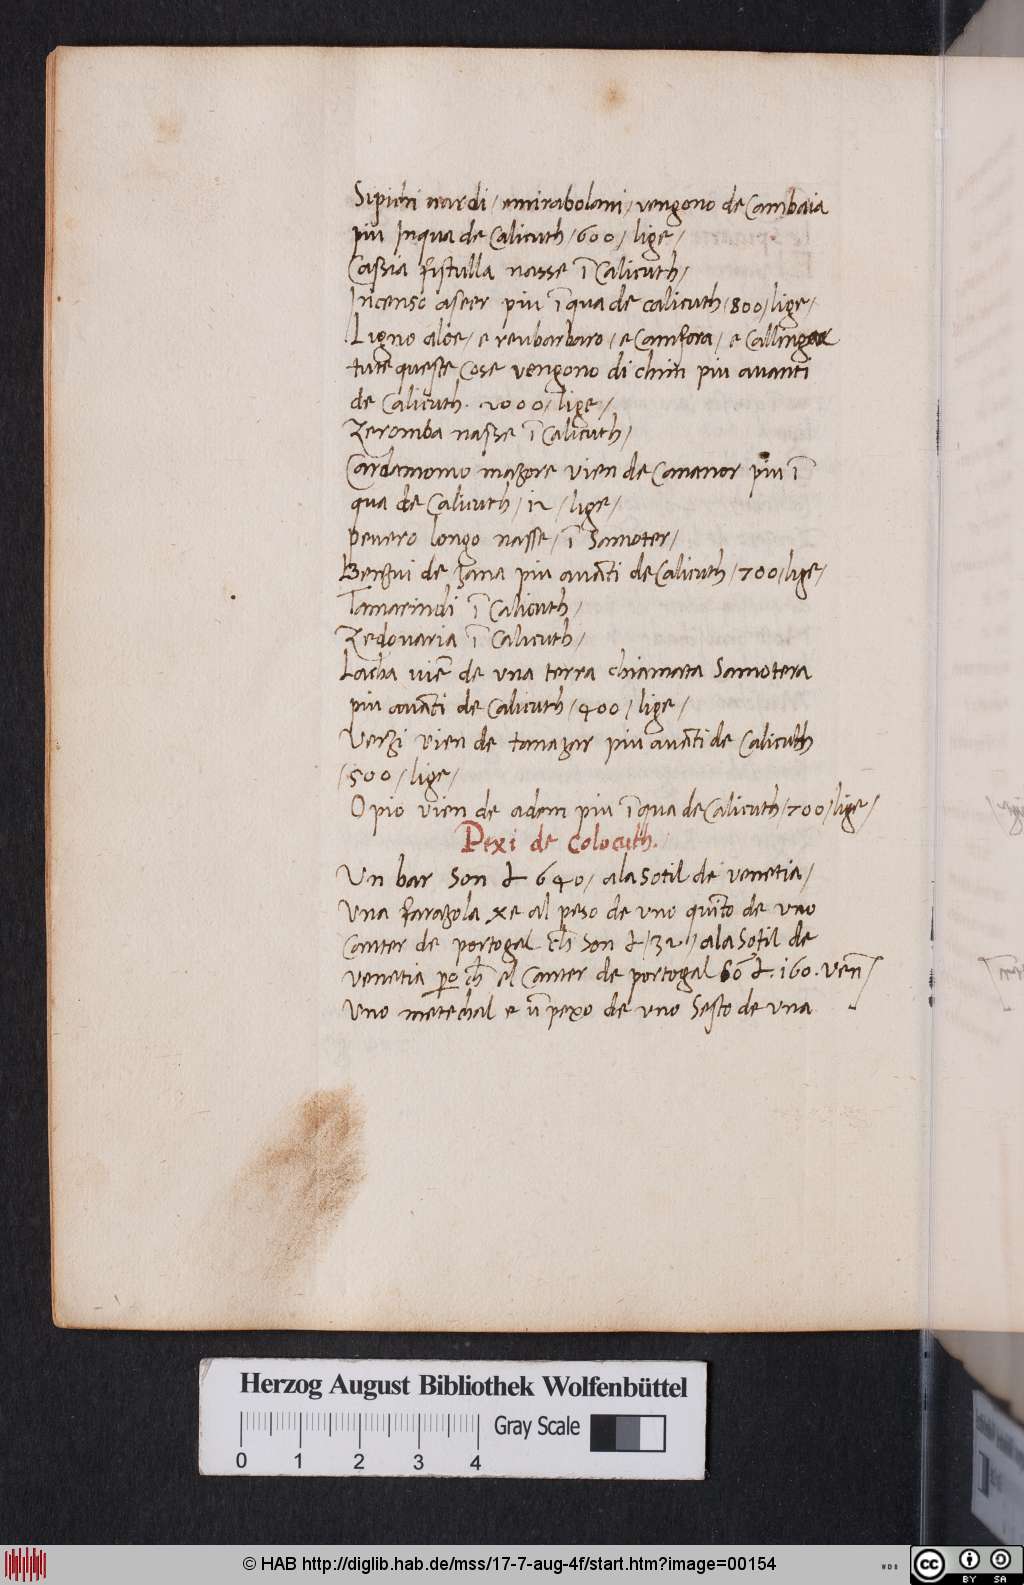 Sipichi nardi / emirabolani / vengono de Cambaia
piu Inqua de Calicuth / 600 / lige /
Caßia fistulla nasse ī Calicuth /
Incenso aseer piu īqua de calicuth / 800 / lige /
Ligno aloe / e reubarbaro / e Camfora / e Callingar
tute queste Cose vengono di chin piu auanti
de Calicuth . 2000 / lige /
Zeromba naße ī Calicuth /
Cardamomo mazore vien de Cananor piu ī
qua de Calicuth / 12 / lige /
peuero longo nasse / ī Samoter /
Benzui de zana piu auāti de Calicuth / 700 / lige /
Tamarindi ī Calicuth /
Zedouaria ī Calicuth /
Lacha uiē de vna terra chiamata Samotera
piu auāti de Calicuth / 400 / lige /
Verzi vien de tanazar piu auāti de Calicuth
/ 500 / lige /
Opio vien de adem piu īqua de Calicuth / 700 / lige /
Pexi de Colocuth .
Un bar Son ł 640 / ala Sotil de venetia /
Vna farazola xe al peso de vno quīto de vno
Canter de portogal ch̄ Son ł / 32 / ala Sotil de
venetia ꝑo ch̄ el Canter de portogal Sō ł . 160 . ven̄
Vno metechal e ū pexo de vno Sesto de vna
Herzog August Bibliothek Wolfenbüttel
Gray Scale
0 1 2 3 4
© HAB http://diglib.hab.de/mss/17-7-aug-4f/start.htm?image=00154
WDB
cc BY SA